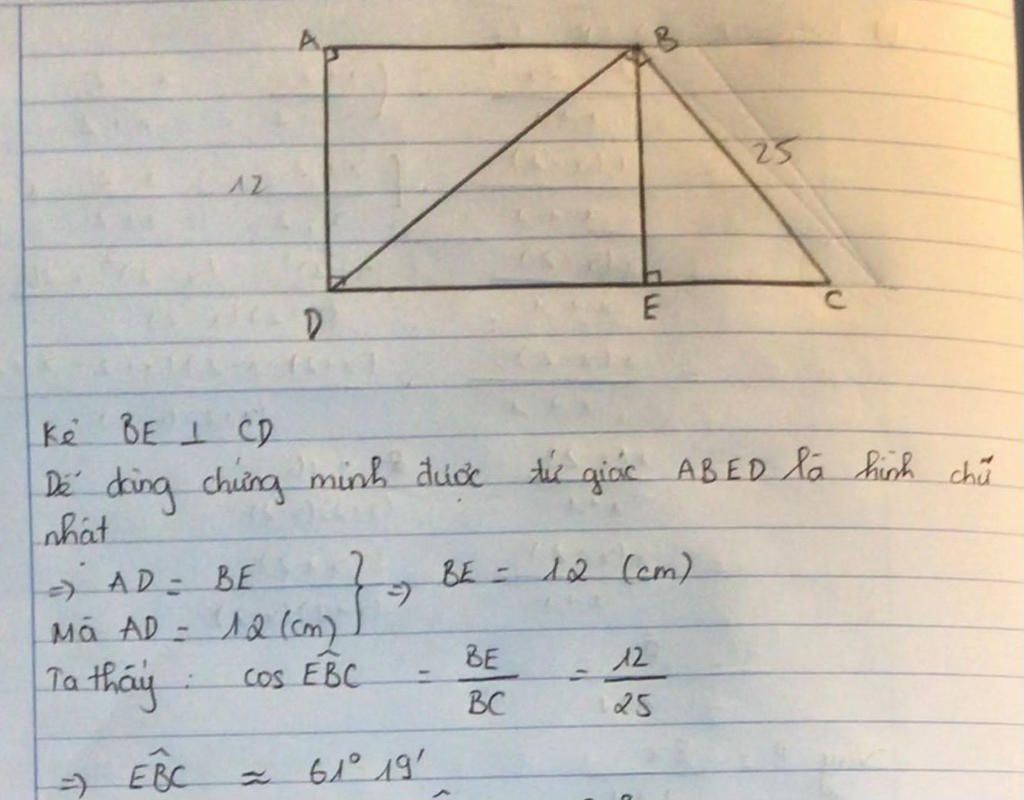 A B
25
12
D E C
Kẻ BE ⊥ CD
Dễ dàng chứng minh được tứ giác ABED là hình chữ
nhật
=> AD = BE } => BE = 12 (cm)
Mà AD = 12 (cm)
Ta thấy : cos EBC = BE/BC = 12/25
=> EBC ≈ 61° 19'